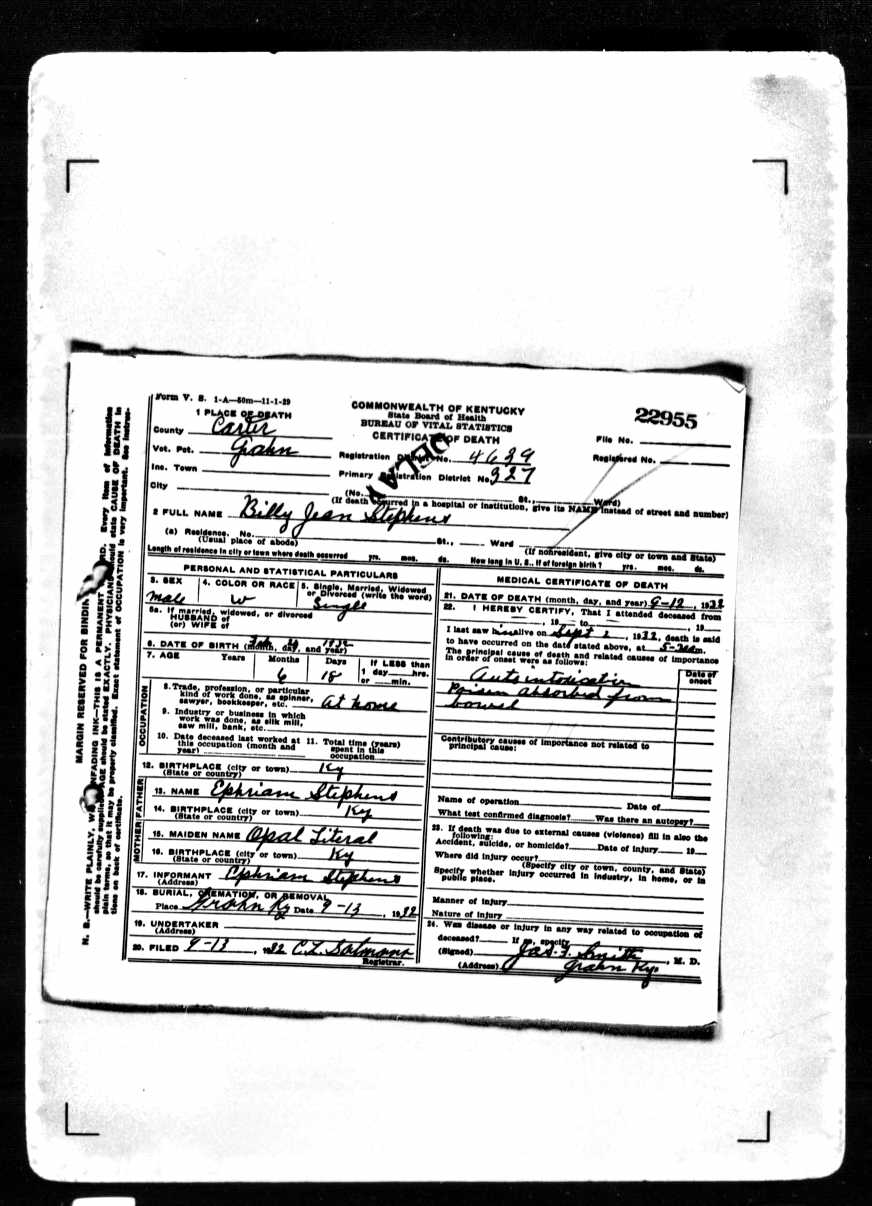 Form V. S. 1-A—50m—11-1-29
COMMONWEALTH OF KENTUCKY
State Board of Health
BUREAU OF VITAL STATISTICS
CERTIFICATE OF DEATH
22955
DELAY
1 PLACE OF DEATH
County Carter
Vot. Pct. Grahn
Inc. Town
City
Registration District No. 4639
Primary Registration District No. 327
File No.
Registered No.
(No. St., Ward)
(If death occurred in a hospital or institution, give its NAME instead of street and number)
2 FULL NAME Billy Jean Stephens
(a) Residence. No. St., Ward
(Usual place of abode) (If nonresident, give city or town and State)
Length of residence in city or town where death occurred yrs. mos. ds. How long in U. S., if of foreign birth? yrs. mos. ds.
PERSONAL AND STATISTICAL PARTICULARS
3. SEX 4. COLOR OR RACE 5. Single, Married, Widowed
or Divorced (write the word)
male W Single
5a. If married, widowed, or divorced
HUSBAND of
(or) WIFE of
6. DATE OF BIRTH (month, day, and year) Feb 1932
7. AGE Years Months Days If LESS than
1 day hrs.
or min.
6 18
OCCUPATION
8. Trade, profession, or particular
kind of work done, as spinner,
sawyer, bookkeeper, etc. At home
9. Industry or business in which
work was done, as silk mill,
saw mill, bank, etc.
10. Date deceased last worked at
this occupation (month and
year)
11. Total time (years)
spent in this
occupation
12. BIRTHPLACE (city or town) Ky
(State or country)
FATHER
13. NAME Ephriam Stephens
14. BIRTHPLACE (city or town) Ky
(State or country)
MOTHER
15. MAIDEN NAME Opal Literal
16. BIRTHPLACE (city or town) Ky
(State or country)
17. INFORMANT Ephriam Stephens
(Address)
18. BURIAL, CREMATION, OR REMOVAL
Place Grahn Ky Date 9-13, 1932
19. UNDERTAKER
(Address)
20. FILED 9-13, 1932 C.L.
Registrar.
MEDICAL CERTIFICATE OF DEATH
21. DATE OF DEATH (month, day, and year) 9-12, 1932
22. I HEREBY CERTIFY, That I attended deceased from
, 19 to , 19
I last saw him alive on Sept 2, 1932, death is said
to have occurred on the date stated above, at m.
The principal cause of death and related causes of importance
in order of onset were as follows:
Date of
onset
Auto intoxication
Poison absorbed from
bowel
Contributory causes of importance not related to
principal cause:
Name of operation Date of
What test confirmed diagnosis? Was there an autopsy?
23. If death was due to external causes (violence) fill in also the
following:
Accident, suicide, or homicide? Date of injury 19
Where did injury occur?
(Specify city or town, county, and State)
Specify whether injury occurred in industry, in home, or in
public place.
Manner of injury
Nature of injury
24. Was disease or injury in any way related to occupation of
deceased? If so, specify
(Signed) Jas. F. Smith, M. D.
(Address) Grahn Ky.
MARGIN RESERVED FOR BINDING
N. B.—WRITE PLAINLY, UNFADING INK—THIS IS A PERMANENT Every item of information
should be carefully supplied. AGE should be stated EXACTLY. PHYSICIANS should state CAUSE OF DEATH in
plain terms, so that it may be properly classified. Exact statement of OCCUPATION is very important. See instruc-
tions on back of certificate.